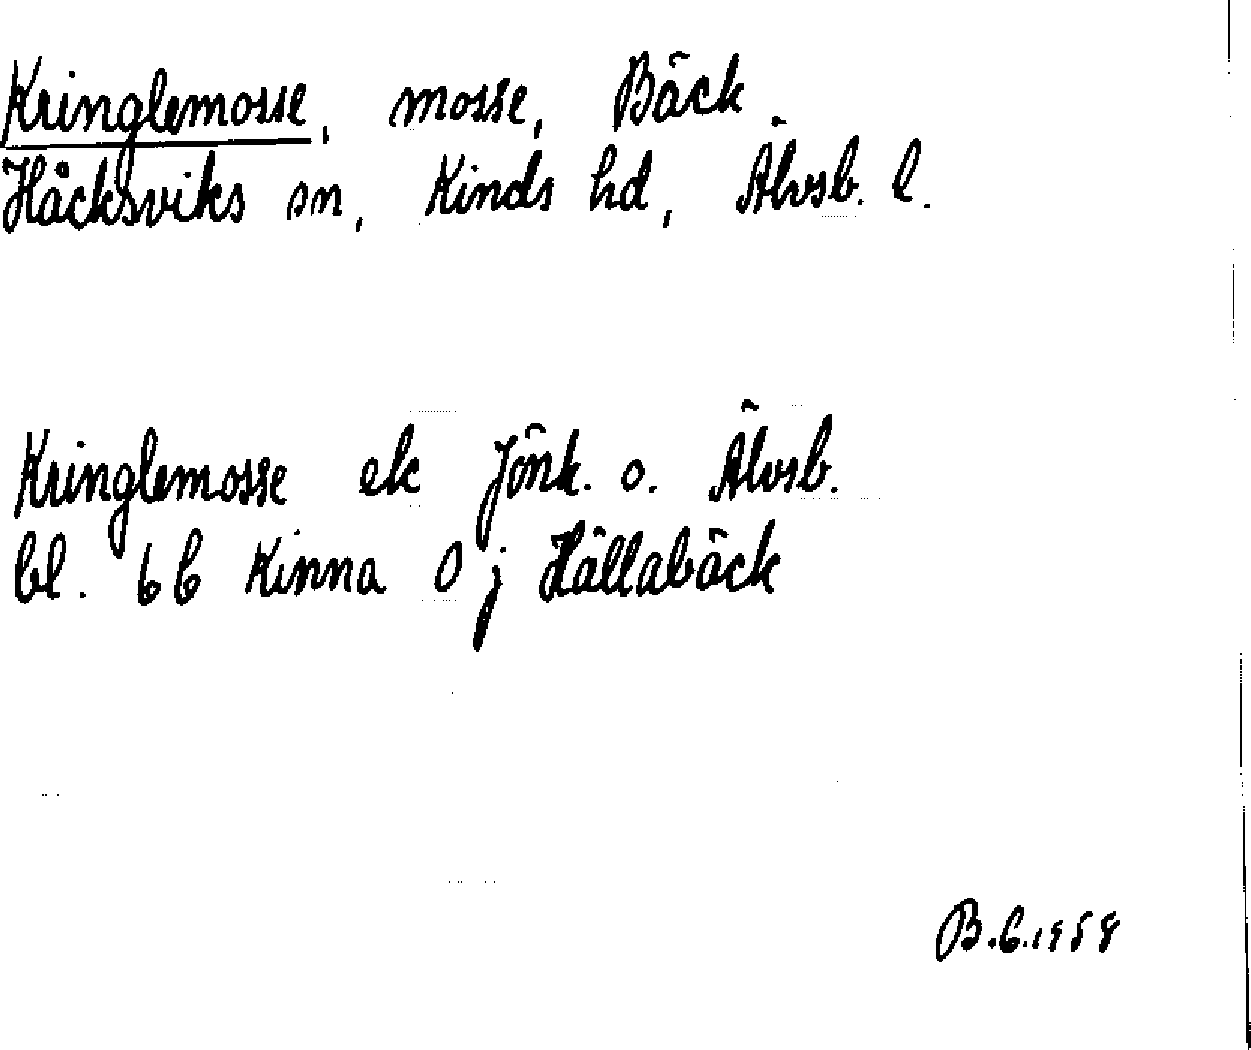 Kringlemosse, mosse, Bäck.
Håcksviks sn, Kinds hd, Älvsb. l.
Kringlemosse ek Jönk. o. Älvsb.
bl. 6b Kinna O j Hällabäck
B.C.1958